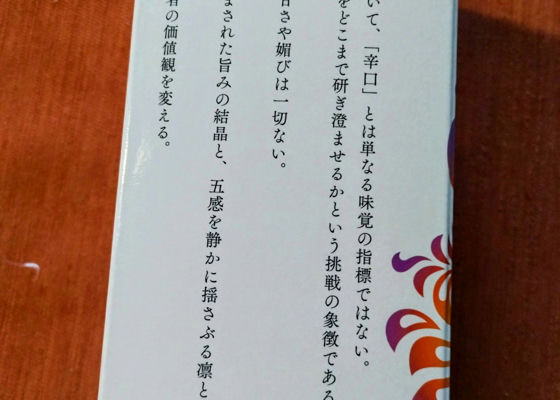 いて、「辛口」とは単なる味覚の指標ではない。
をどこまで研ぎ澄ませるかという挑戦の象徴である
甘さや媚びは一切ない。
まされた旨みの結晶と、五感を静かに揺さぶる凛と
者の価値観を変える。